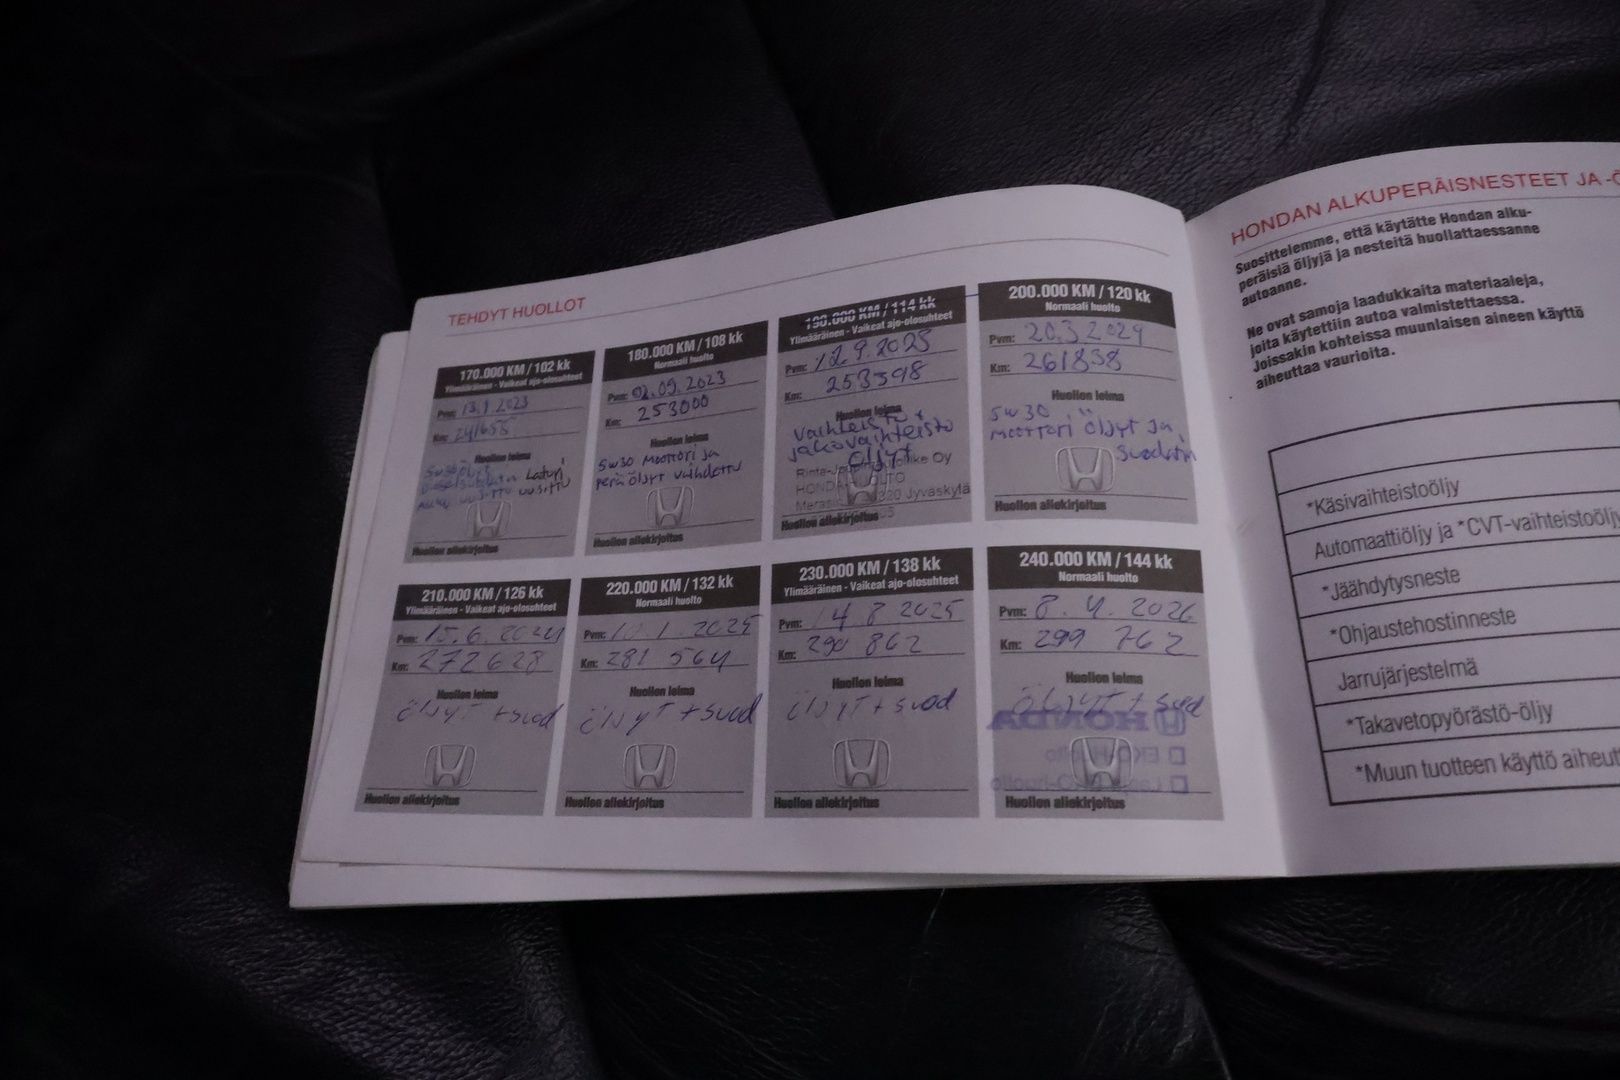 TEHDYT HUOLLOT
170.000 KM / 102 kk
Ylimääräinen - Vaikeat ajo-olosuhteet
Pvm: 13.1.2023
Km: 241655
Huollon leima
5w30 öljyt
Laturi
uusittu uusittu
Huollon allekirjoitus
180.000 KM / 108 kk
Normaali huolto
Pvm: 02.09.2023
Km: 253000
Huollon leima
5w30 moottori ja
perä öljyt vaihdettu
Huollon allekirjoitus
190.000 KM / 114 kk
Ylimääräinen - Vaikeat ajo-olosuhteet
Pvm: 12.9.2023
Km: 253398
Huollon leima
vaihteisto +
jakovaihteisto
öljyt
Rinte-Joupin Autoliike Oy
HONDA
Jyväskylä
Huollon allekirjoitus
200.000 KM / 120 kk
Normaali huolto
Pvm: 20.3.2024
Km: 261838
Huollon leima
5w30
moottori öljyt ja
suodatin
Huollon allekirjoitus
210.000 KM / 126 kk
Ylimääräinen - Vaikeat ajo-olosuhteet
Pvm: 15.6.2024
Km: 272628
Huollon leima
öljyt + suod
Huollon allekirjoitus
220.000 KM / 132 kk
Normaali huolto
Pvm: 10.1.2025
Km: 281 564
Huollon leima
öljyt + suod
Huollon allekirjoitus
230.000 KM / 138 kk
Ylimääräinen - Vaikeat ajo-olosuhteet
Pvm: 14.8.2025
Km: 290 862
Huollon leima
öljyt + suod
Huollon allekirjoitus
240.000 KM / 144 kk
Normaali huolto
Pvm: 8.4.2026
Km: 299 762
Huollon leima
öljyt + suod
HONDA
Huollon allekirjoitus
HONDAN ALKUPERÄISNESTEET JA -Ö
Suosittelemme, että käytätte Hondan alku-
peräisiä öljyjä ja nesteitä huollattaessanne
autoanne.
Ne ovat samoja laadukkaita materiaaleja,
joita käytettiin autoa valmistettaessa.
Joissakin kohteissa muunlaisen aineen käyttö
aiheuttaa vaurioita.
*Käsivaihteistoöljy
Automaattiöljy ja *CVT-vaihteistoöljy
*Jäähdytysneste
*Ohjaustehostinneste
Jarrujärjestelmä
*Takavetopyörästö-öljy
*Muun tuotteen käyttö aiheutt